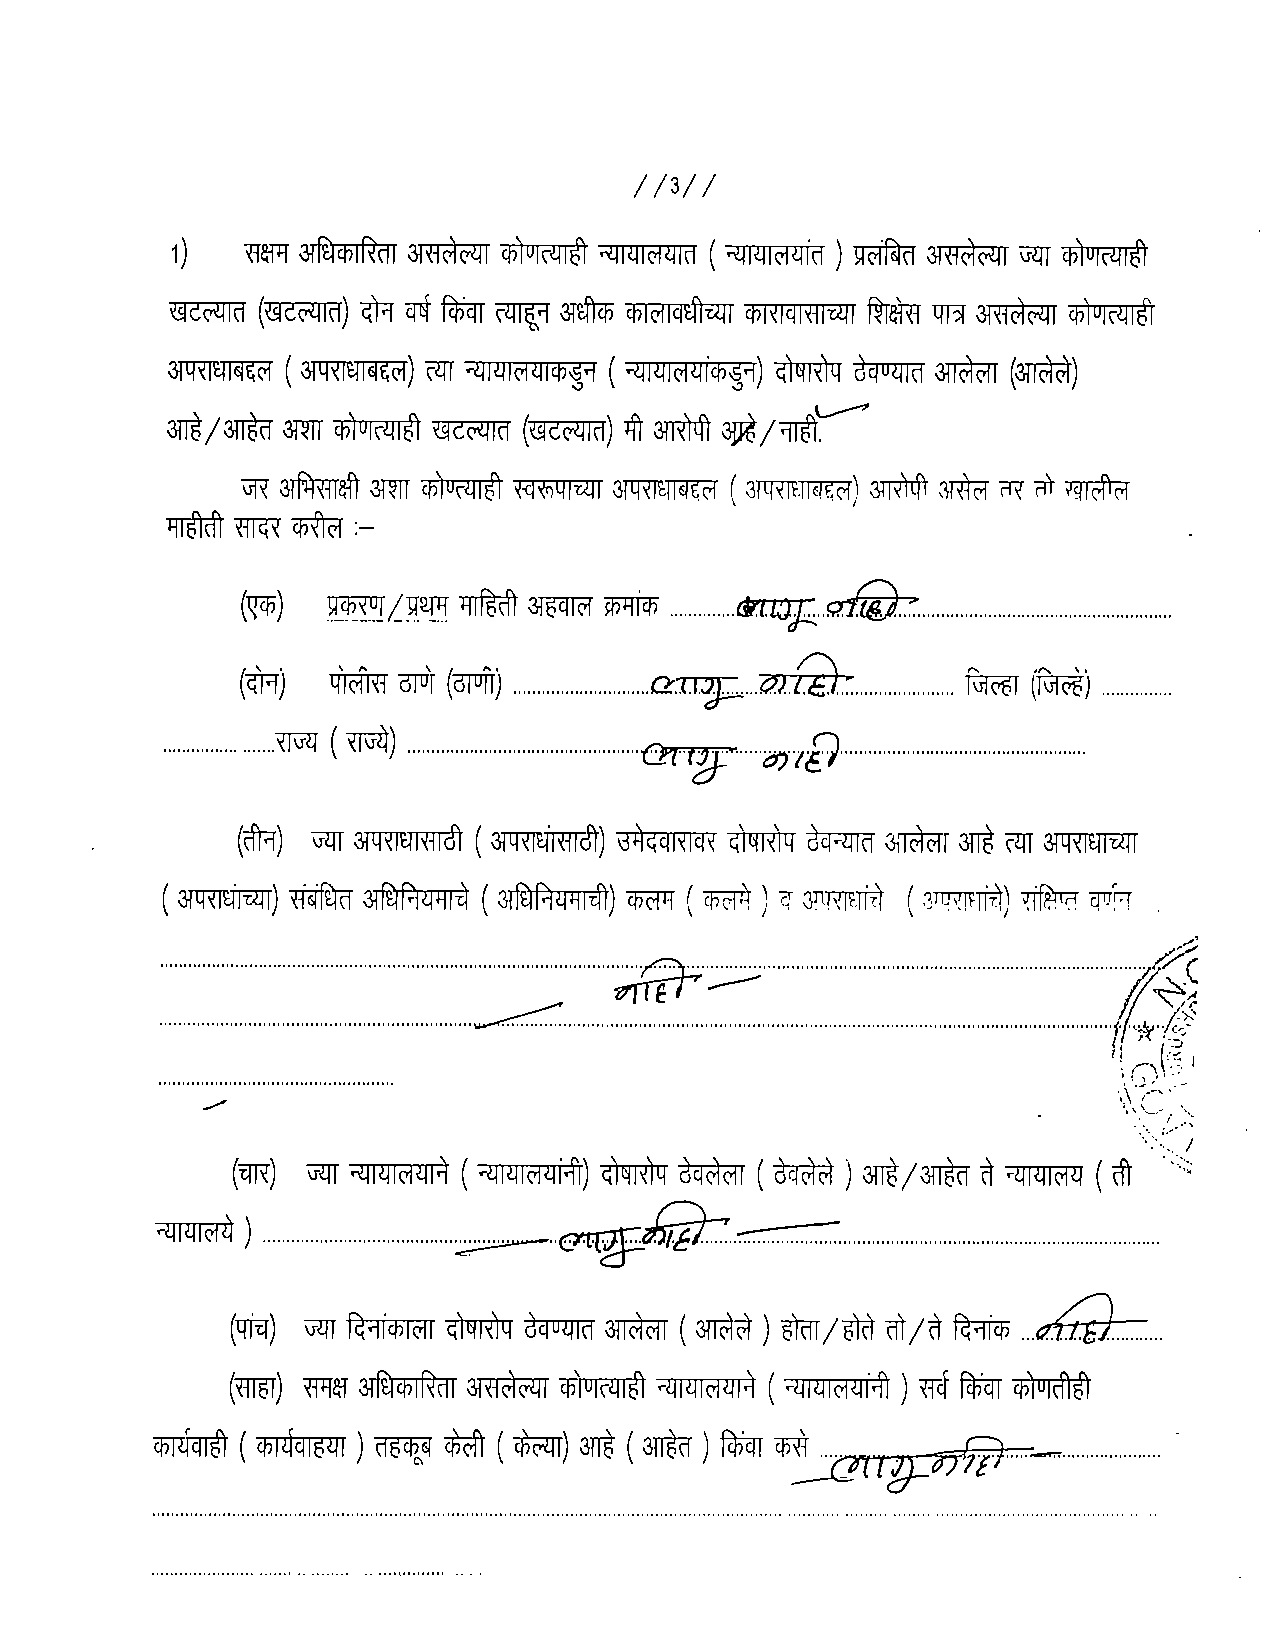 //3//
1) सक्षम अधिकारिता असलेल्या कोणत्याही न्यायालयात ( न्यायालयांत ) प्रलंबित असलेल्या ज्या कोणत्याही
खटल्यात (खटल्यात) दोन वर्ष किंवा त्याहून अधीक कालावधीच्या कारावासाच्या शिक्षेस पात्र असलेल्या कोणत्याही
अपराधाबद्दल ( अपराधाबद्दल) त्या न्यायालयाकडुन ( न्यायालयांकडुन) दोषारोप ठेवण्यात आलेला (आलेले)
आहे/आहेत अशा कोणत्याही खटल्यात (खटल्यात) मी आरोपी आहे/नाही.
जर अभिसाक्षी अशा कोणत्याही स्वरूपाच्या अपराधाबद्दल ( अपराधाबद्दल) आरोपी असेल तर तो खालील
माहीती सादर करील :–
(एक) प्रकरण/प्रथम माहिती अहवाल क्रमांक .............लागु नाही.............
(दोन) पोलीस ठाणे (ठाणी) .............लागु नाही............. जिल्हा (जिल्हे) .............
.............राज्य ( राज्ये) .............लागु नाही.............
(तीन) ज्या अपराधासाठी ( अपराधांसाठी) उमेदवारावर दोषारोप ठेवन्यात आलेला आहे त्या अपराधाच्या
( अपराधांच्या) संबंधित अधिनियमाचे ( अधिनियमाची) कलम ( कलमे ) व अपराधांचे ( अपराधांचे) संक्षिप्त वर्णन
नाही
(चार) ज्या न्यायालयाने ( न्यायालयांनी) दोषारोप ठेवलेला ( ठेवलेले ) आहे/आहेत ते न्यायालय ( ती
न्यायालये ) .............लागु नाही.............
(पांच) ज्या दिनांकाला दोषारोप ठेवण्यात आलेला ( आलेले ) होता/होते तो/ते दिनांक ...नाही...
(साहा) समक्ष अधिकारिता असलेल्या कोणत्याही न्यायालयाने ( न्यायालयांनी ) सर्व किंवा कोणतीही
कार्यवाही ( कार्यवाहया ) तहकूब केली ( केल्या) आहे ( आहेत ) किंवा कसे .............लागु नाही.............